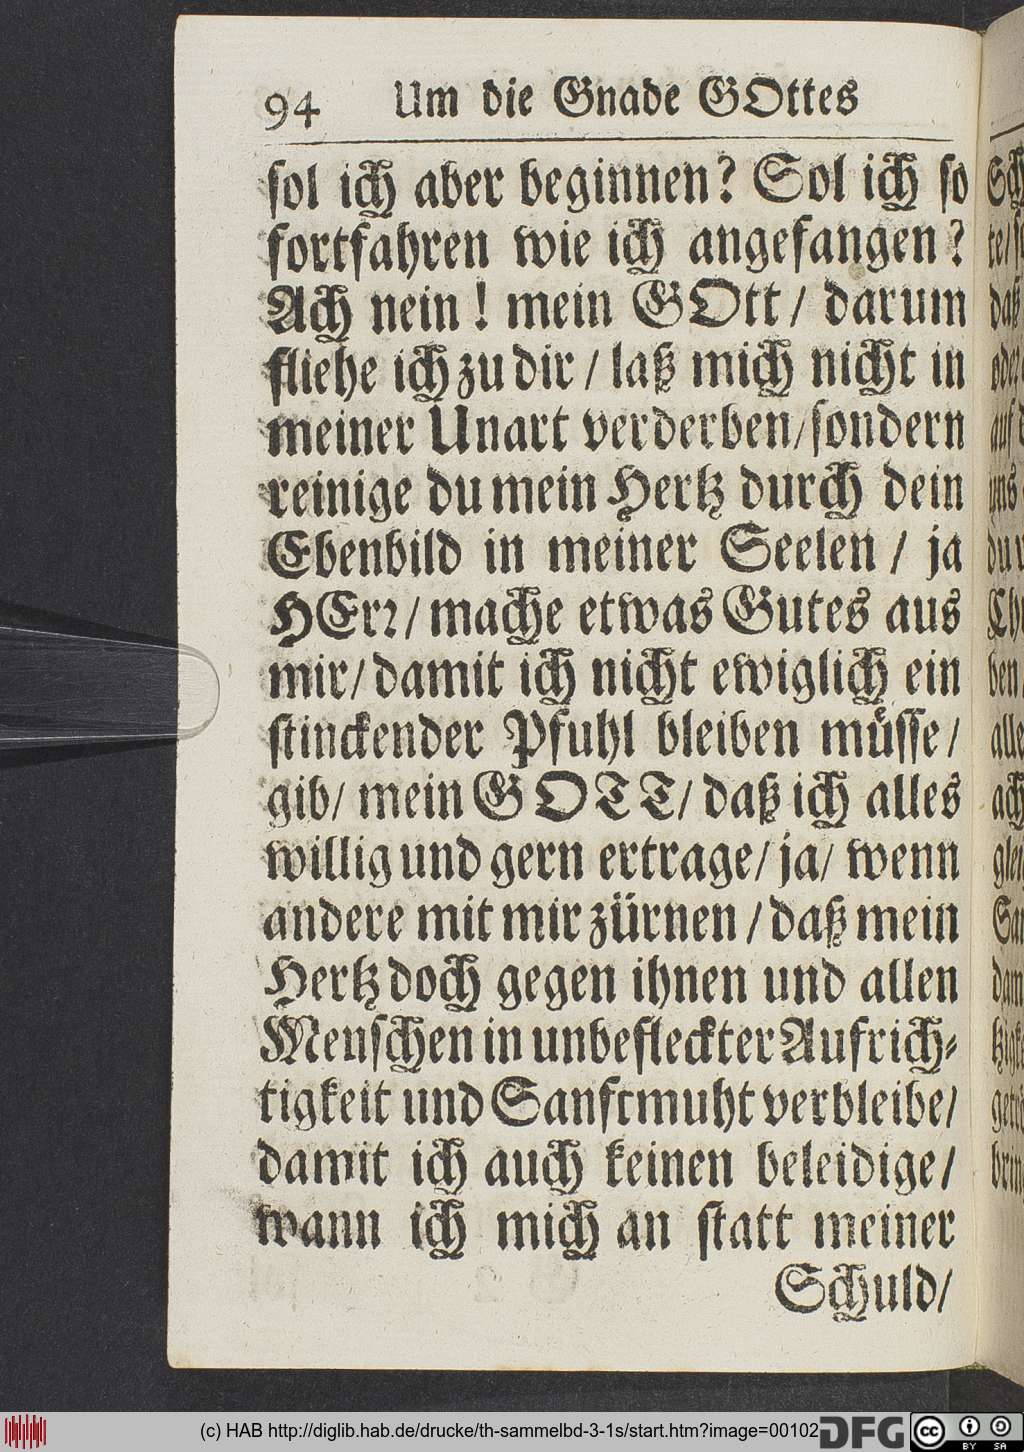 94 Um die Gnade GOttes
sol ich aber beginnen? Sol ich so
fortfahren wie ich angefangen?
Ach nein! mein GOtt/ darum
fliehe ich zu dir/ laß mich nicht in
meiner Unart verderben/ sondern
reinige du mein Hertz durch dein
Ebenbild in meiner Seelen/ ja
HErr/ mache etwas Gutes aus
mir/ damit ich nicht ewiglich ein
stinckender Pfuhl bleiben müsse/
gib/ mein GOTT/ daß ich alles
willig und gern ertrage/ ja/ wenn
andere mit mir zürnen/ daß mein
Hertz doch gegen ihnen und allen
Menschen in unbefleckter Aufrich-
tigkeit und Sanftmuht verbleibe/
damit ich auch keinen beleidige/
wann ich mich an statt meiner
Schuld/
(c) HAB http://diglib.hab.de/drucke/th-sammelbd-3-1s/start.htm?image=00102
DFG
cc BY SA